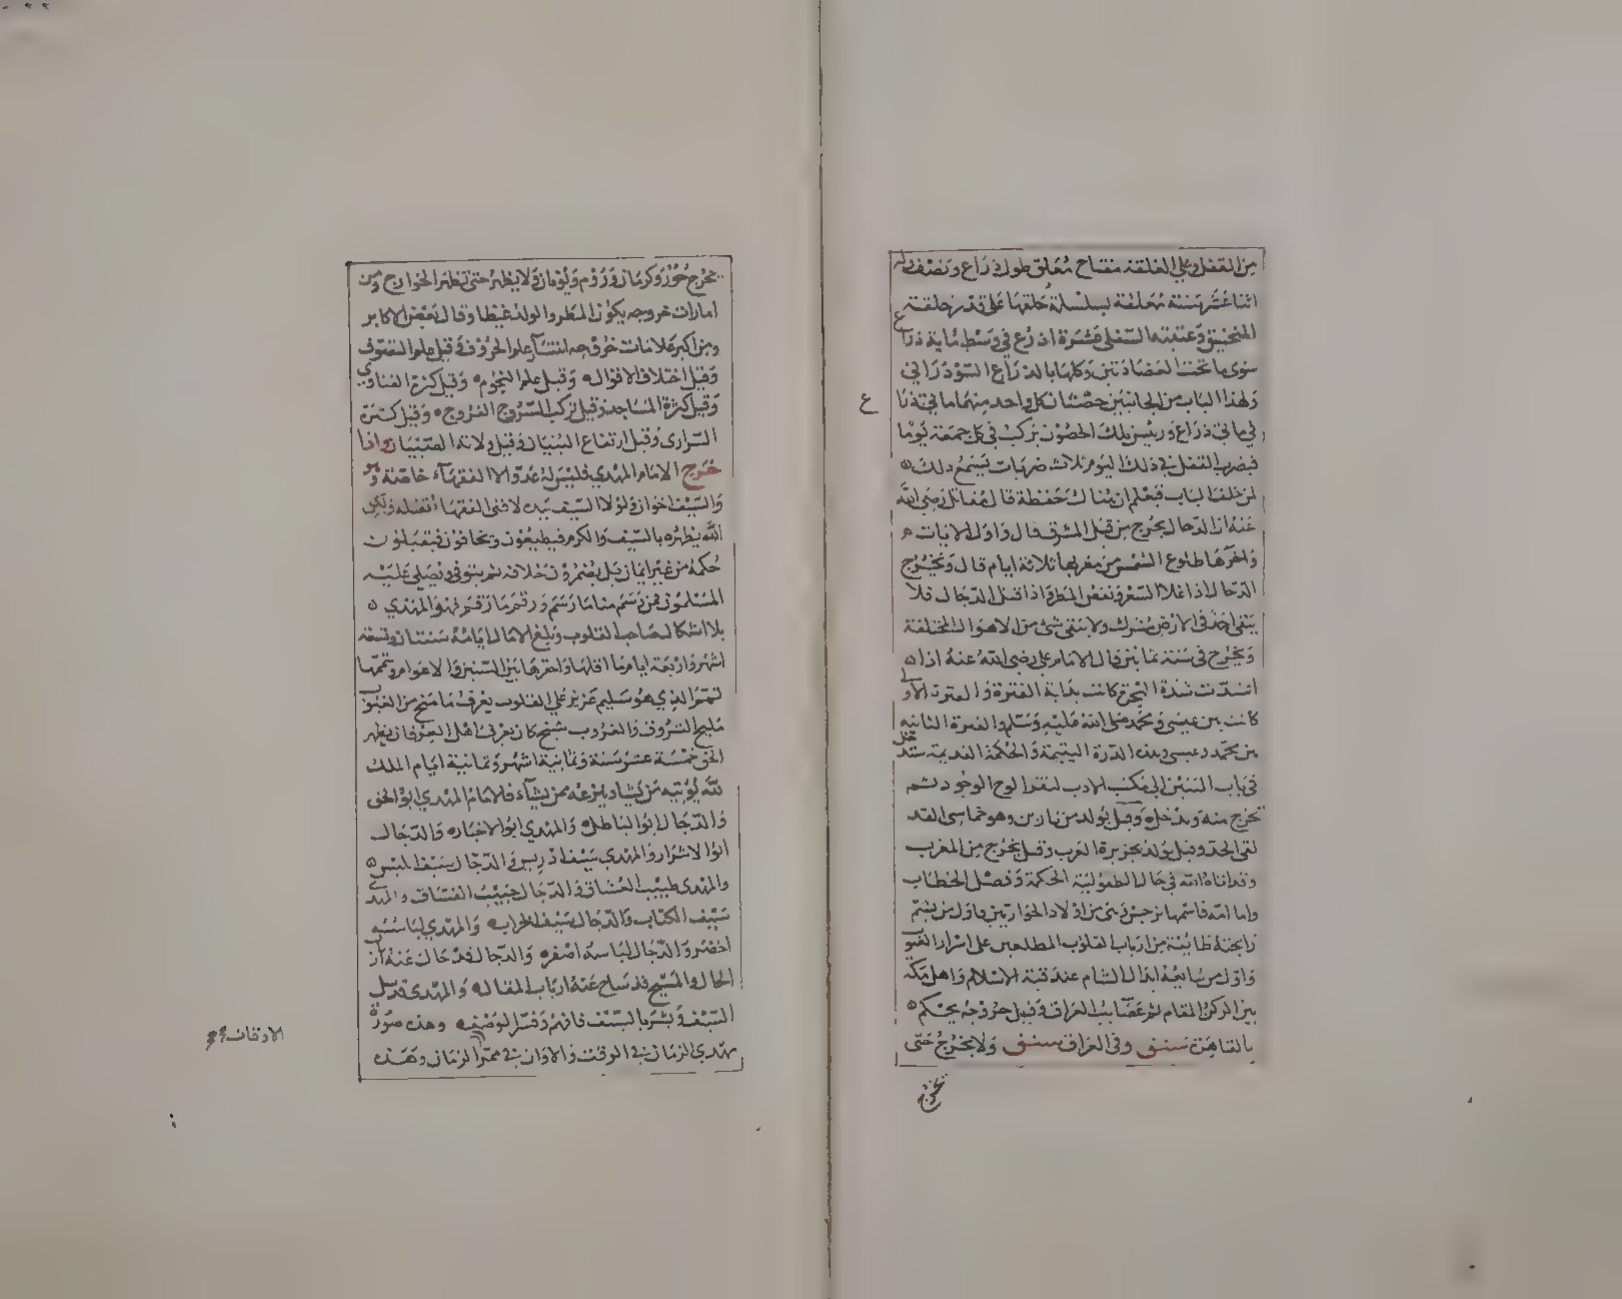 من القفل وعلي الغلقة مفتاح معلق طوله ذراع ونصف وله
اثنا عشر سنة معلقة بسلسلة حلقها على قدر حلقة
المنجنيق وعتبته السفلى عشرة اذرع في وسط ماية ذراع
سوى ما تحت العضادتين وكلها بالذراع السوذراني
ولهذا الباب من الجانبين حصنان كل واحد منهما مايتي ذراع
في مايتي ذراع ورئيس تلك الحصون يركب في كل جمعة يوما
فيضرب القفل في ذلك اليوم ثلاث ضربات يسمع ذلك
من خلف الباب فيعلم ان هناك حفظة قال مقاتل رضي الله
عنه ان الدجال يخرج من قبل المشرق قال واول الايات
واخرها طلوع الشمس من مغربها ثلاثة ايام قال ويخرج
الدجال اذا غلا السعر ونقص المطر فاذا قتل الدجال فلا
يبقى احد في الارض مشرك ولا يبقى شئ من الاهوال المختلفة
ويخرج في سنة ثمانين قال الامام علي رضي الله عنه اذا
اشتدت شدة الهجرة كانت بداية الفترة والفترة الاولى
كانت بين عيسى ومحمد صلى الله عليه وسلم والفترة الثانية
بين محمد وعيسى وهذه الدرة اليتيمة والحكمة القديمة ستدخل
في باب السنين الى مكتب الادب لتقرا لوح الوجود ثم
تخرج منه وتدخل وقيل يولد من فارس وهو خماسي القد
لقى الخد وقيل يولد بجزيرة العرب وقيل يخرج من المغرب
وقد اتاه الله في حال الطفولية الحكمة وفصل الخطاب
واما امه فاسمها نرجس وهي من اولاد الحواريين واول من يشم
رايحته طائفة من ارباب القلوب المطلعين على اسرار الغيوب
واول من يبايعه ابدال الشام عند قبة الاسلام واهل مكة
بين الركن والمقام ثم عصائب العراق وقبل خروجه يحكم
بالقاهرة سنق وفي العراق سنق ولا يخرج حتى
يخرج
يخرج خوز وكرمان وروم ويونان ولا يظهر حتى تظهر الخوارج ومن
امارات خروجه يكون المطر والولد غيظا وقال بعض الاكابر
ومن اكبر علامات خروجه انتشار علم الحروف وقيل علم التصوف
وقيل اختلاف الاقوال وقيل علم النجوم وقيل كثرة الفتاوي
وقيل كثرة المساجد وقيل تركب السروج الفروج وقيل كثرة
السراري وقيل ارتفاع البنيان وقيل ولاية الصبيان واذا
خرج الامام المهدي فليس له عدو الا الفقهاء خاصة وهو
والسيف اخوان ولولا السيف بيده لافتى الفقهاء بقتله ولكن
الله يظهره بالسيف والكرم فيطيعون ويخافون فيقبلون
حكمه من غير ايمان بل يضمرون خلافه ثم يتوفى ويصلي عليه
المسلمون فمن رسم منا ما رسم ورقم ما رقم فهو المهدي
بلا اشكال لصاحب القلوب وبلغ الامال ايامه سنتان وتسعة
اشهر واربعة ايام
مليح الشروق والغروب شيخ كان يعرفه اهل العرفان يظهر
الحق خمسة عشر سنة وثمانية اشهر وثمانية ايام الملك
لله يؤتيه من يشا وينزعه ممن يشاء فالامام المهدي ابو الحق
والدجال ابو الباطل والمهدي ابو الاخيار والدجال
ابو الاشرار والمهدي سيف ادريس والدجال سيف ابليس
والمهدي طبيب العشاق والدجال حبيب الفساق والمهدي
سيف الكتاب والدجال سيف الخراب والمهدي لباسه
اخضر والدجال لباسه اصفر والدجال قد حال عنه ان
الحال والمسيح قد ساح عنه ارباب المقال والمهدي قد سل
السيف وبشر بالسيف فافهم وفسر الوصف وهذه صورة
مهدي الزمان في الوقت والاوان في ممر الزمان وهذه
الاوقات